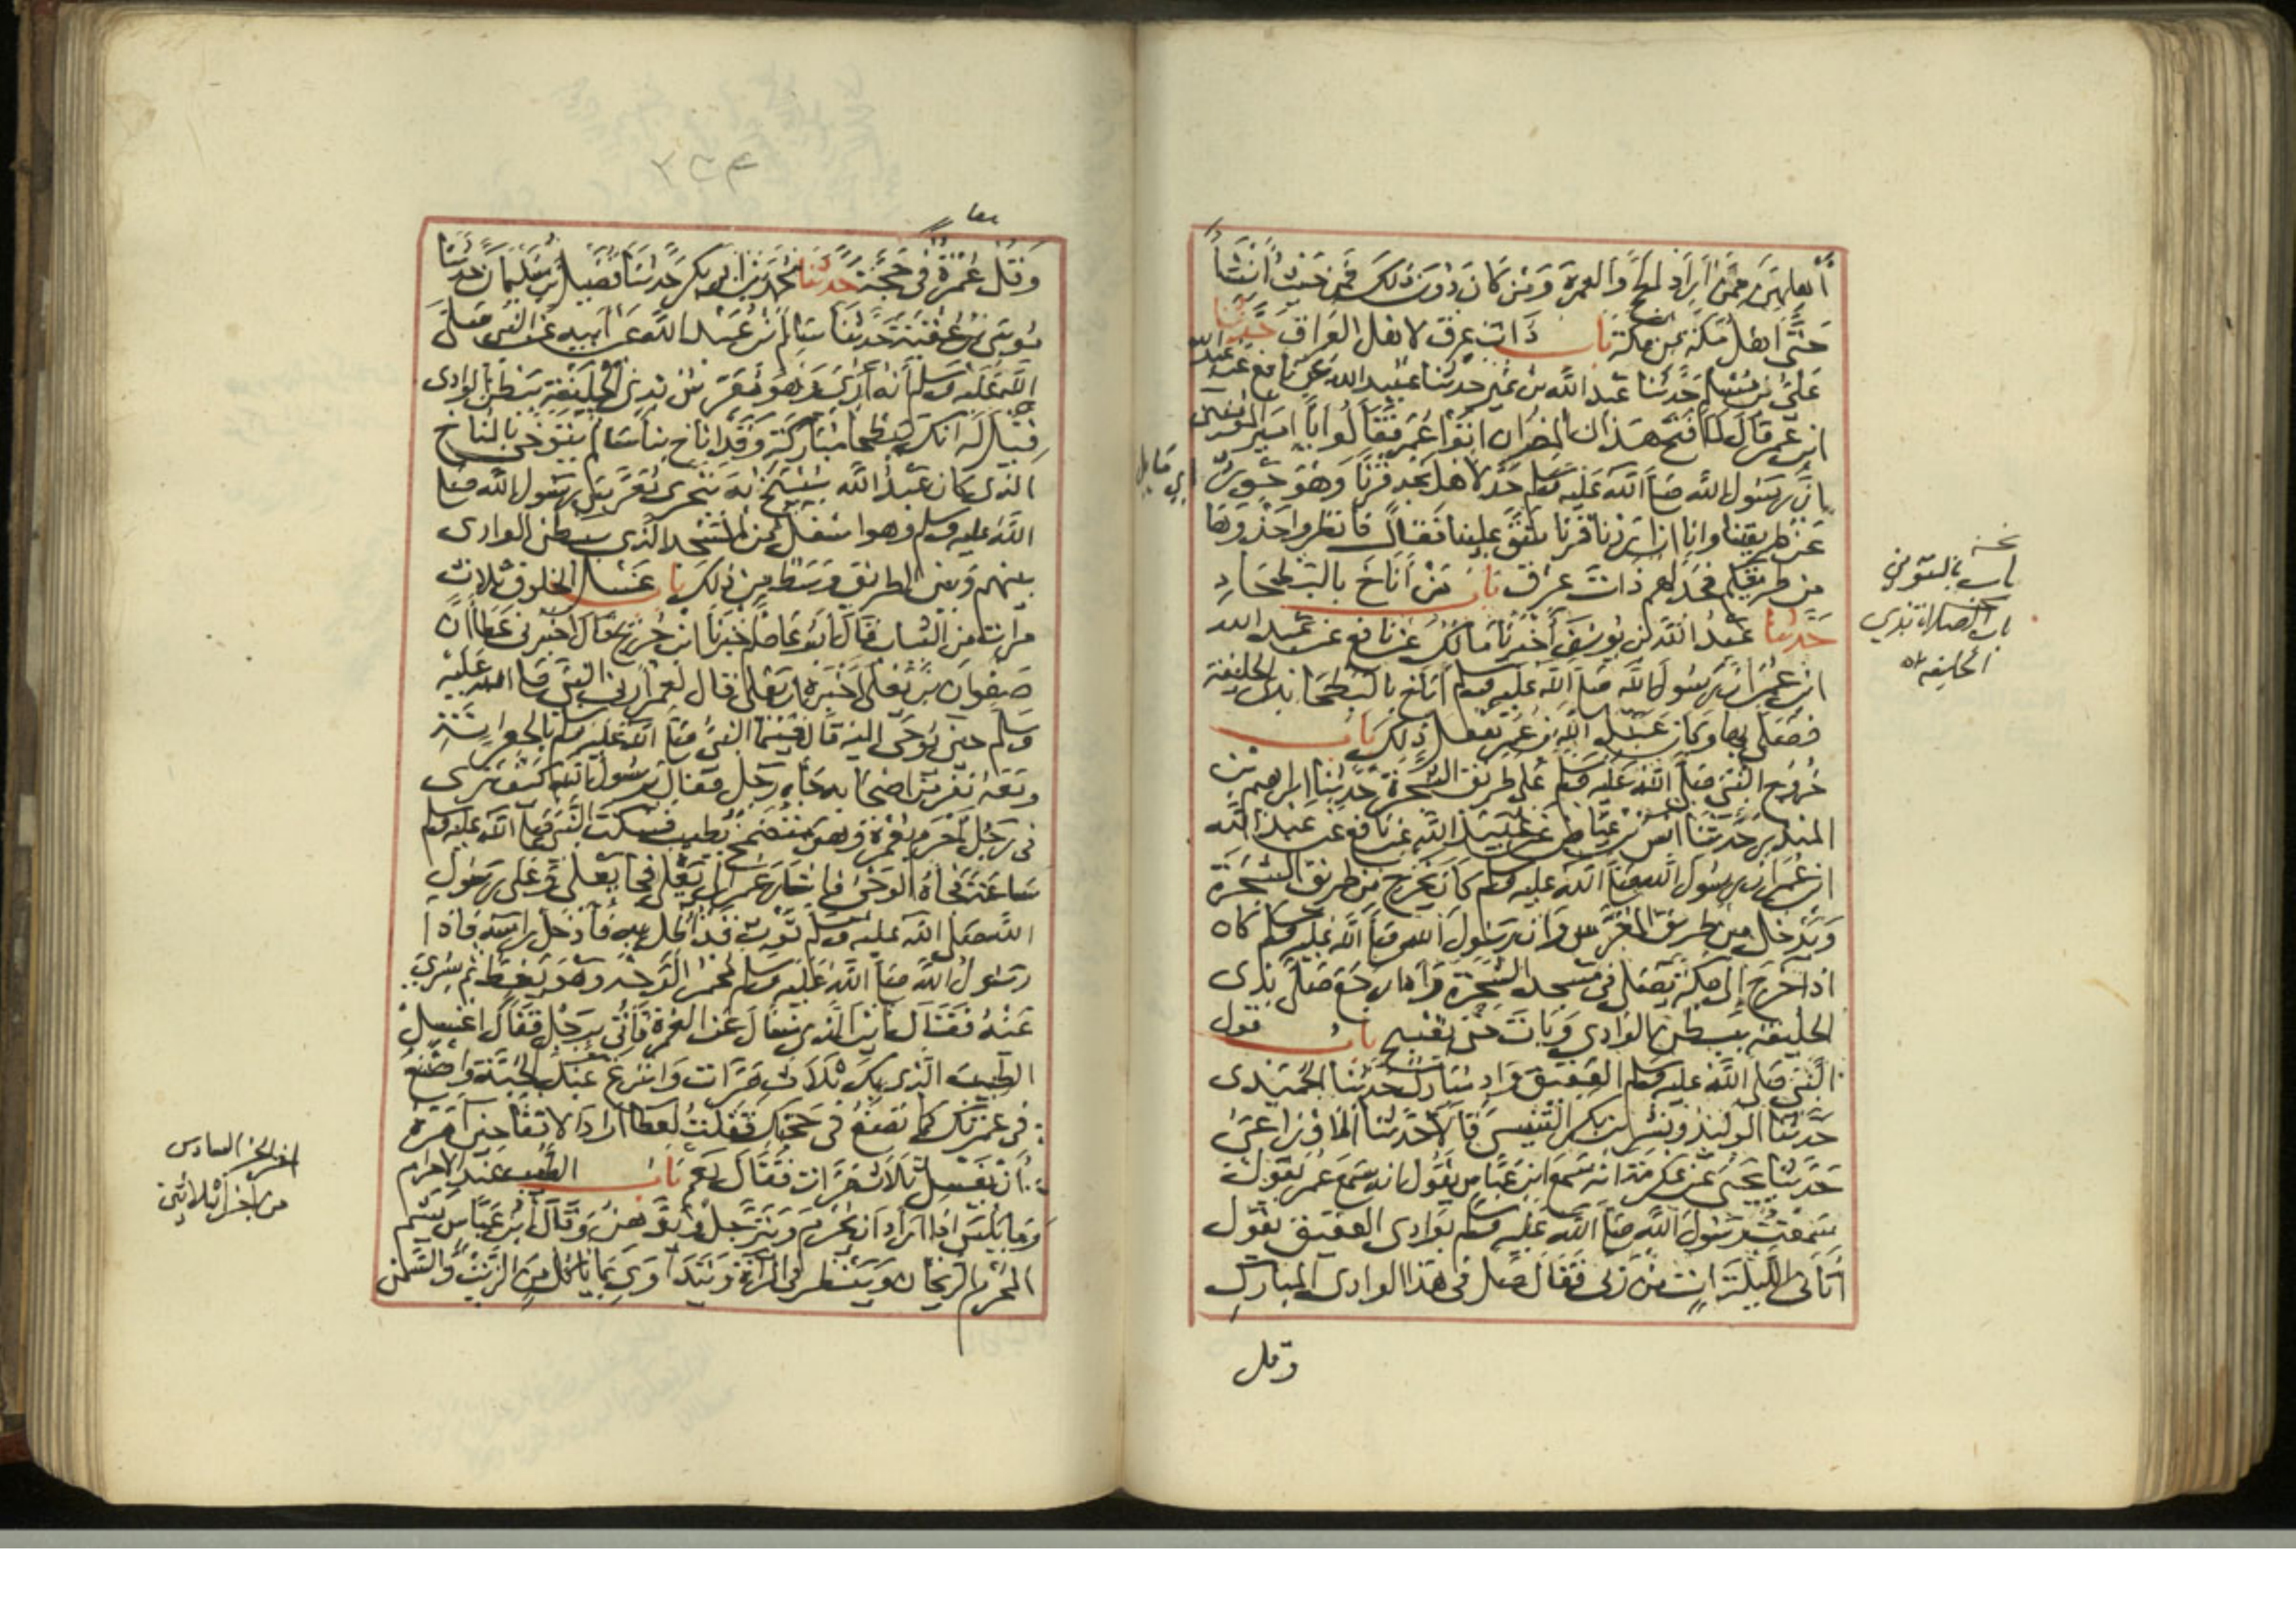 أهلهن ممن أراد الحج والعمرة ومن كان دون ذلك فمن حيث أنشأ
حتى أهل مكة من مكة باب ذات عرق لأهل العراق حدثنا
علي بن مسلم حدثنا عبد الله بن نمير حدثنا عبيد الله عن نافع عن عبد الله
ابن عمر قال لما فتح هذان المصران أتوا عمر فقالوا يا أمير المؤمنين
إن رسول الله صلى الله عليه وسلم حد لأهل نجد قرنا وهو جور
عن طريقنا وإنا إن أردنا قرنا شق علينا فقال فانظروا حذوها
من طريقكم فحد لهم ذات عرق باب من أناخ بالبطحاء
حدثنا عبد الله بن يوسف أخبرنا مالك عن نافع عن عبد الله
ابن عمر أن رسول الله صلى الله عليه وسلم أناخ بالبطحاء بذي الحليفة
فصلى بها وكان عبد الله بن عمر يفعل ذلك باب
خروج النبي صلى الله عليه وسلم على طريق الشجرة حدثنا إبراهيم بن
المنذر حدثنا أنس بن عياض عن عبيد الله عن نافع عن عبد الله
ابن عمر أن رسول الله صلى الله عليه وسلم كان يخرج من طريق الشجرة
ويدخل من طريق المعرس وأن رسول الله صلى الله عليه وسلم كان
إذا خرج إلى مكة يصلي في مسجد الشجرة وإذا رجع صلى بذي
الحليفة ببطن الوادي وبات حتى يصبح باب قول
النبي صلى الله عليه وسلم العقيق واد مبارك حدثنا الحميدي
حدثنا الوليد وبشر بن بكر التنيسي قالا حدثنا الأوزاعي
حدثنا يحيى عن عكرمة أنه سمع ابن عباس يقول إنه سمع عمر يقول
سمعت رسول الله صلى الله عليه وسلم بوادي العقيق يقول
أتاني الليلة آت من ربي فقال صل في هذا الوادي المبارك
وقل
نسخة
باب بالتنوين
باب الصلاة بذي
الحليفة
أي مايل
٢٦٤
وقل عمرة في حجة حدثنا محمد بن أبي بكر حدثنا فضيل بن سليمان حدثنا
موسى بن عقبة حدثنا سالم بن عبد الله عن أبيه عن النبي صلى
الله عليه وسلم أنه أري وهو معرس بذي الحليفة ببطن الوادي
فقيل له إنك ببطحا مباركة وقد أناخ بنا سالم يتوخى بالمناخ
الذي كان عبد الله ينيخ به يتحرى معرس رسول الله صلى
الله عليه وسلم وهو أسفل من المسجد الذي ببطن الوادي
بينهم وبين الطريق وسط من ذلك باب غسل الخلوق ثلاث
مرات من الثياب قال أبو عاصم أخبرنا ابن جريج قال أخبرني عطا أن
صفوان بن يعلى أخبره أن يعلى قال لعمر أرني النبي صلى الله عليه
وسلم حين يوحى إليه قال فبينما النبي صلى الله عليه وسلم بالجعرانة
ومعه نفر من أصحابه جاه رجل فقال يا رسول الله كيف ترى
في رجل أحرم بعمرة وهو متضمخ بطيب فسكت النبي صلى الله عليه وسلم
ساعة فجاه الوحي فأشار عمر إلى يعلى فجا يعلى وعلى رسول
الله صلى الله عليه وسلم ثوب قد أظل به فأدخل رأسه فإذا
رسول الله صلى الله عليه وسلم محمر الوجه وهو يغط ثم سري
عنه فقال أين الذي سأل عن العمرة فأتي برجل فقال اغسل
الطيب الذي بك ثلاث مرات وانزع عنك الجبة واصنع
في عمرتك كما تصنع في حجتك فقلت لعطا أراد الانقا حين أمره
أن يغسل ثلاث مرات فقال نعم باب الطيب عند الإحرام
وما يلبس إذا أراد أن يحرم ويترجل ويدهن وقال ابن عباس يشم
المحرم الريحان وينظر في المرآة ويتداوى بما يأكل من الزيت والسمن
آخر الجزء السادس
من أجزاء ثلاثين